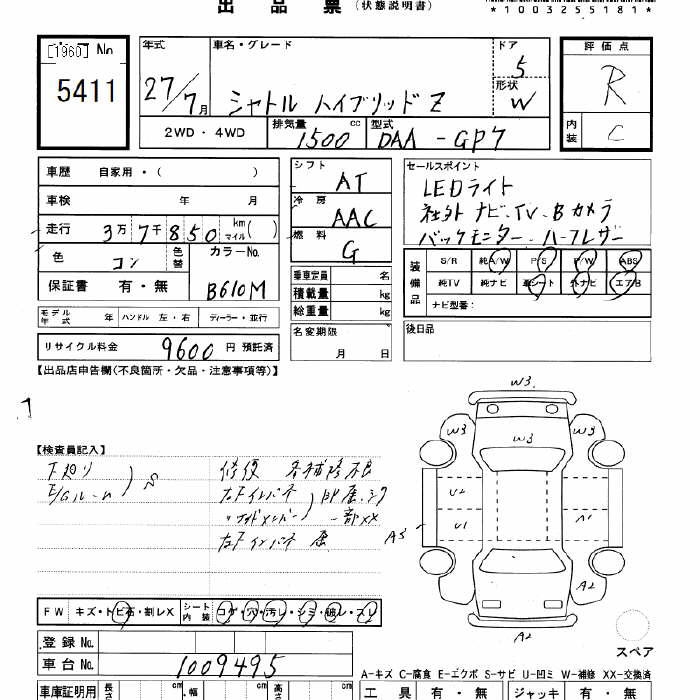 出品票 (状態説明書)
*1003255181*
[1960] No
5411
年式
27/7月
車名・グレード
シャトル ハイブリッド Z
ドア
5
形状
W
評価点
R
内装
C
2WD・4WD
排気量 1500 cc
型式 DAA-GP7
車歴 自家用・( )
車検 年 月
走行 3万7千850 km マイル( )
色 コン 色替
カラーNo.
B610M
保証書 有・無
シフト AT
冷房 AAC
燃料 G
乗車定員 名
積載量 kg
総重量 kg
セールスポイント
LEDライト
社外 ナビ・TV・Bカメラ
バックモニター・ハーフレザー
装備品
S/R 純A/W P/S P/W ABS
純TV 純ナビ 革シート 外ナビ エアB
ナビ型番:
モデル年式 年 ハンドル 左・右 ディーラー・並行
リサイクル料金 9600 円 預託済
名変期限
月 日
後日品
【出品店申告欄(不良箇所・欠品・注意事項等)】
【検査員記入】
下廻り
E/Gルーム
修復
一部XX
W3
W3
W3
W3
U2
U1
A1
A3
A2
A2
スペア
FW キズ・トビ石・割レX
シート内装 コゲ・穴・汚レ・シミ・破レ・スレ
登録No.
車台No. 1009495
A-キズ C-腐食 E-エクボ S-サビ U-凹ミ W-補修 XX-交換済
車庫証明用 長さ cm 幅 cm 高さ cm
工具 有・無 ジャッキ 有・無